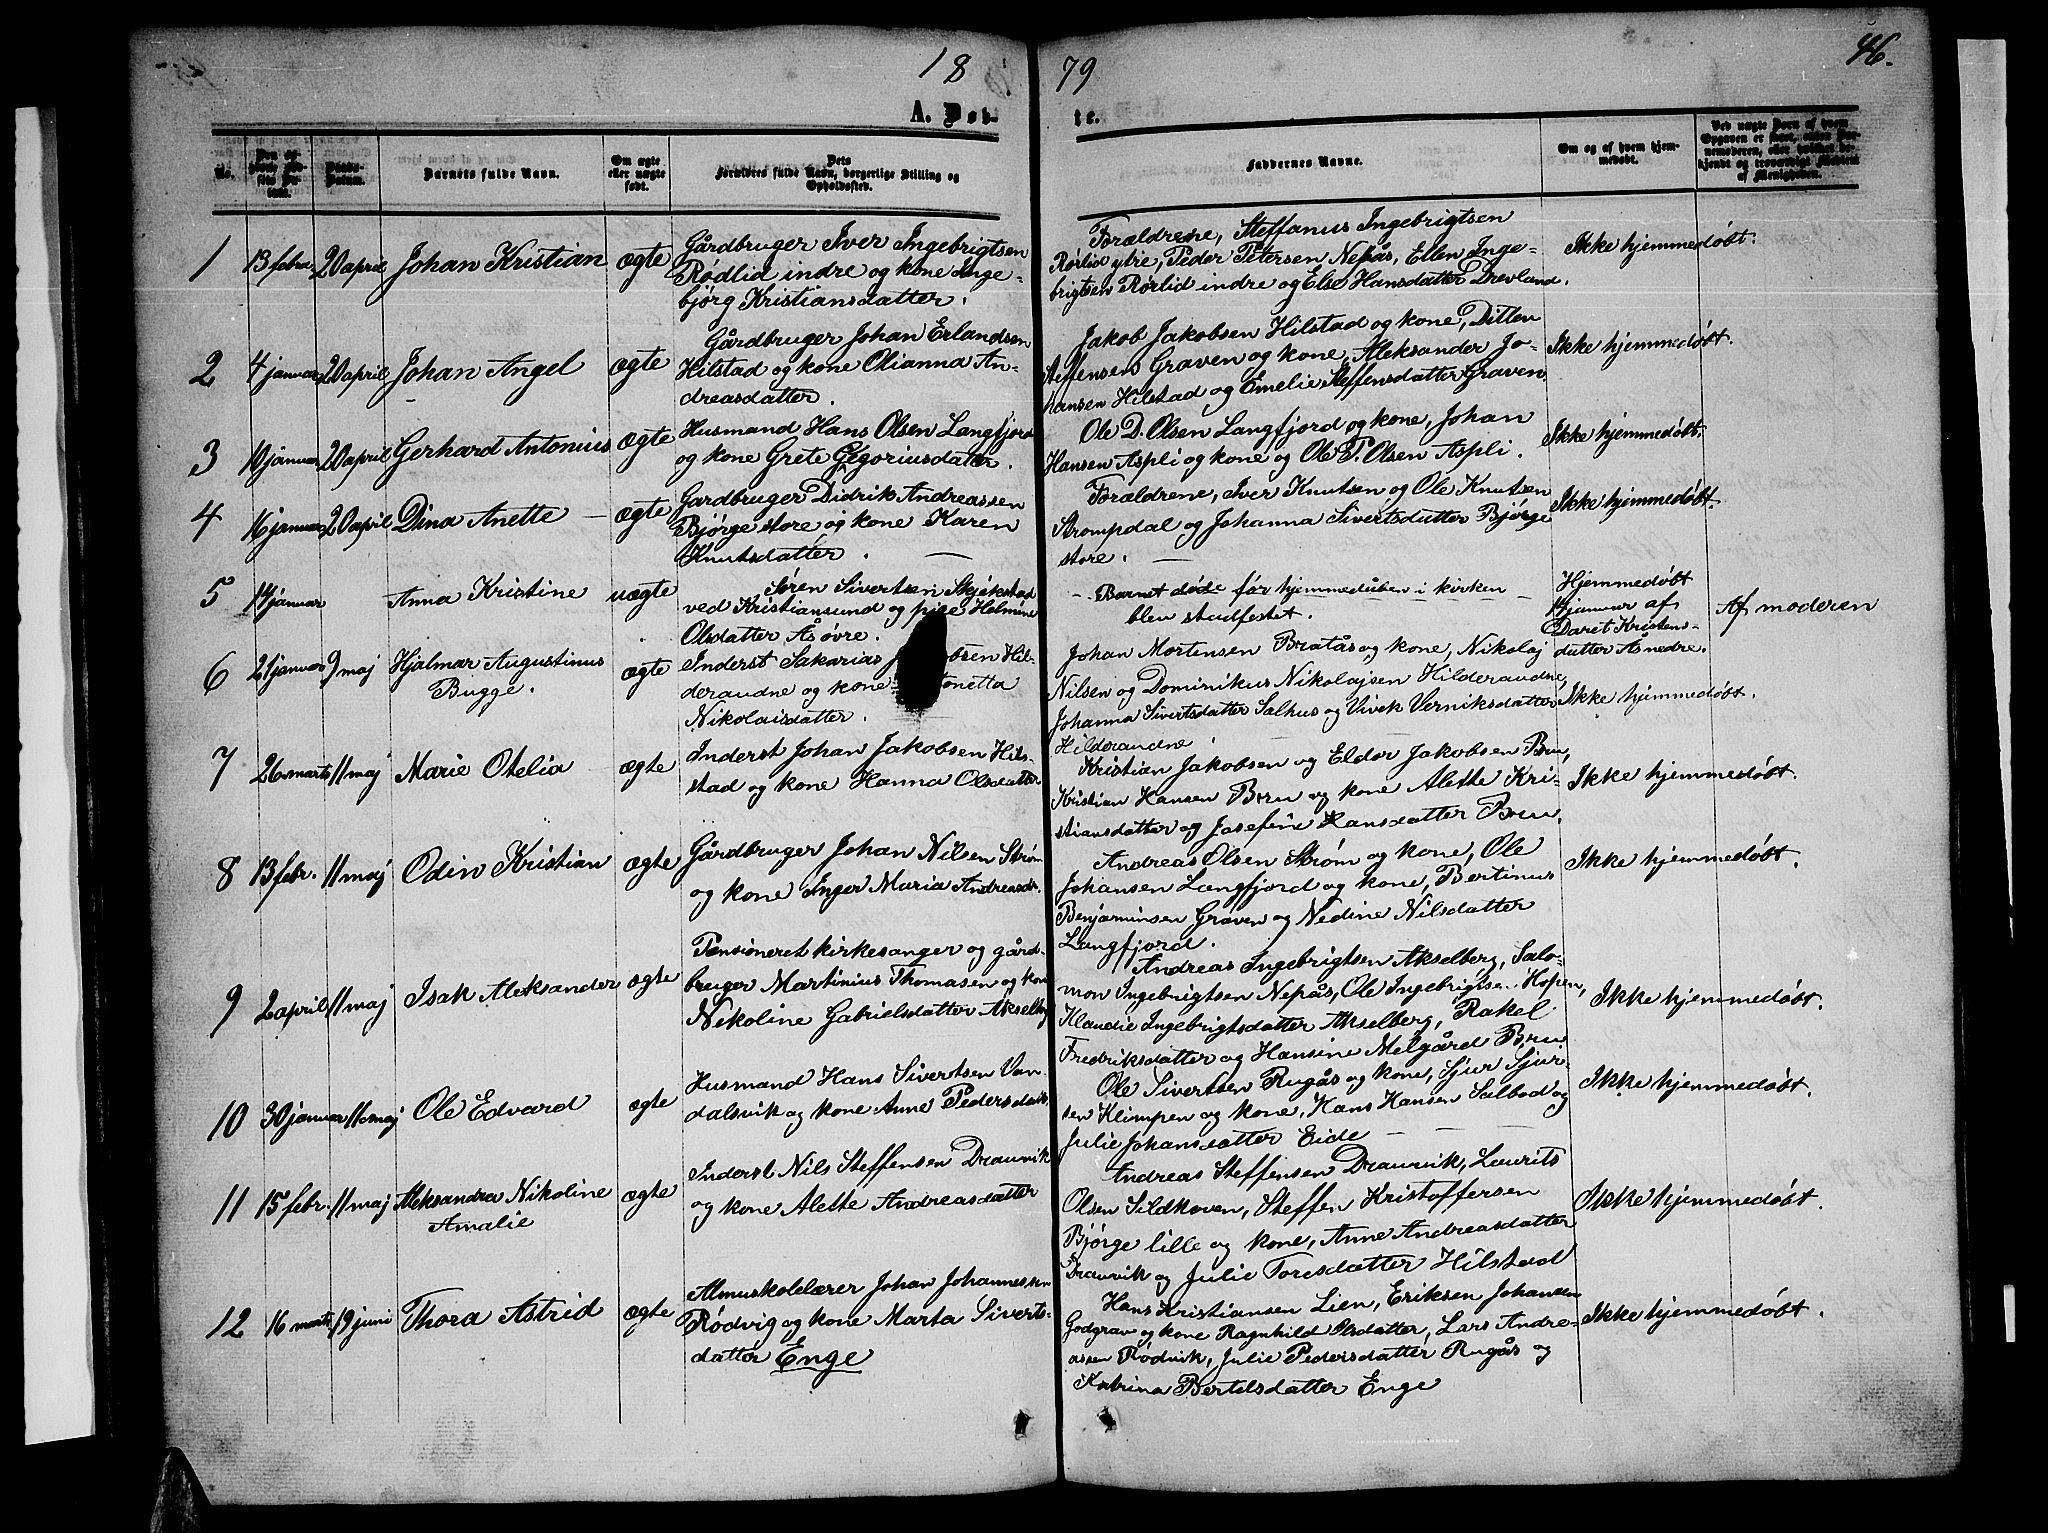 18 79
46.
A. Døb- te.
No.
Den og
Barnets fulde Navn.
Om ægte
eller uægte
født.
Dets
Forældres fulde Navn, borgerlige Stilling og
Opholdssted.
Faddernes Navne.
Om og af hvem hjem-
medøbt.
Ved uægte Børn af hvem
Opgaven er
af Menigheden.
1 13 febr. 20 april Johan Kristian ægte
Gårdbruger Iver Ingebrigtsen
Rødlid indre og kone Inge-
bjørg Kristiansdatter.
Forældrene, Steffanus Ingebrigtsen
Rørlid ytre, Peder Petersen Nepås, Ellen Inge-
brigtsen Rørlid indre og Else Hansdatter Drevland.
Ikke hjemmedøbt.
2 4 januar 20 april Johan Angel ægte
Gårdbruger Johan Erlandsen
Hilstad og kone Olianna An-
dreasdatter.
Jakob Jakobsen Hilstad og kone, Ditlen
Steffensens Graven og kone, Aleksander Jo-
hansen Hilstad og Emelie Steffensdatter Graven.
Ikke hjemmedøbt.
3 10 januar 20 april Gerhard Antonius ægte
Husmand Hans Olsen Langfjord
og kone Grete Gegoriusdatter.
Ole D. Olsen Langfjord og kone, Johan
Hansen Aspli og kone og Ole P. Olsen Aspli.
Ikke hjemmedøbt.
4 16 januar 20 april Dina Anette — ægte
Gardbruger Didrik Andreassen
Bjørge store og kone Karen
Knutsdatter. —
Forældrene, Iver Knutsen og Ole Knutsen
Strompdal og Johanna Sivertsdatter Bjørge
store. —
Ikke hjemmedøbt.
5 14 januar Anna Kristine uægte
Søren Sivertsen Skjekstad
ved Kristiansund og pige Helmine
Olsdatter Åsøvre.
- Barnet døde før hjemmedåben i kirken —
blev stadfestet.
Hjemmedøbt
januar af
Daret Kristens-
datter Åsnedre.
Af moderen
6 21 januar 9 maj Hjalmar Augustinus
Bugge. ægte
Inderst Sakarias bsen Hil-
deraudne og kone onetta
Nikolaisdatter.
Johan Mortensen Bratås og kone, Nikolaj
Nilsen og Dominikus Nikolajsen Hilderaudne,
Johanna Sivertsdatter Salhus og Vivek Verniksdatter
Hilderaudne
Ikke hjemmedøbt.
7 26 marts 11 maj Marie Otelia ægte
Inderst Johan Jakobsen Hil-
stad og kone Hanna Olsdatter
Kristian Jakobsen og Eldor Jakobsen Bru,
Kristian Hansen Bru og kone Alette Kri-
stiansdatter og Josefine Hansdatter Bru.
Ikke hjemmedøbt.
8 13 febr. 11 maj Odin Kristian ægte
Gårdbruger Johan Nilsen Strøm
og kone Inger Maria Andreasdr.
Andreas Olsen Strøm og kone, Ole
Johansen Langfjord og kone, Bertinus
Benjaminsen Graven og Nedine Nilsdatter
Langfjord.
Ikke hjemmedøbt.
9 2 april 11 maj Isak Aleksander ægte
Pensioneret kirkesanger og gård-
bruger Martinius Thomasen og kone
Nikoline Gabrielsdatter Akselbrg
Andreas Ingebrigtsen Akselberg, Salo-
mon Ingebrigtsen Nepås, Ole Ingebrigtsen Hopen,
Klaudie Ingebrigtsdatter Akselberg, Rakel
Fredriksdatter og Hansine Melgård Bru
Ikke hjemmedøbt.
10 30 januar 11 maj Ole Edvard ægte
Husmand Hans Sivertsen Van-
dalsvik og kone Anne Pedersdatter.
Ole Sivertsen Rugås og kone, Sjur Sjur-
sen Klimpen og kone, Hans Hansen Salbod og
Julie Johansdatter Eide — — —
Ikke hjemmedøbt.
11 15 febr. 11 maj Aleksandra Nikoline
Amalie ægte
Inderst Nils Steffensen Drauvik
og kone Alette Andreasdatter
Andreas Steffensen Drauvik, Laurits
Olsen Sildhoven, Steffen Kristoffersen
Bjørge lille og kone, Anne Andreasdatter
Drauvik og Julie Toresdatter Hilstad
Ikke hjemmedøbt.
12 16 marts 19 juni Thora Astrid ægte
Almuskolelærer Johan Johannessen
Rødvig og kone Marta Siverts-
datter Enge
Hans Kristiansen Lien, Eriksen Johansen
Godgrav og kone Ragnhild Olsdatter, Lars Andre-
assen Rødvik, Julie Pedersdatter Rugås og
Katrina Bertelsdatter Enge
Ikke hjemmedøbt.